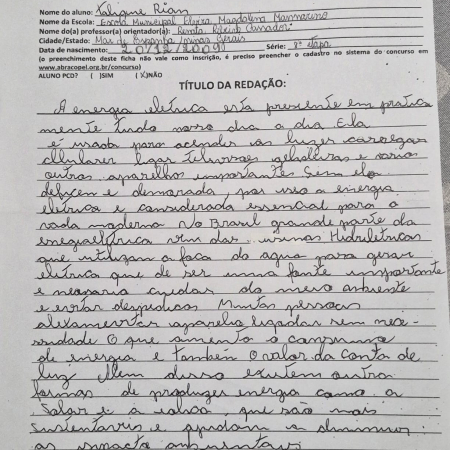 Nome do aluno: Kalique Rian
Nome da Escola: Escola Municipal Eloiza Magdalena
Nome do(a) professor(a) orientador(a): Renata Ribeiro
Cidade/Estado: Mar de Espanha/minas Gerais
Data de nascimento: 20/12/2009 Série: 8ª etapa
(o preenchimento desta ficha não vale como inscrição, é preciso preencher o cadastro no sistema do concurso em
www.abracopel.org.br/concurso)
ALUNO PCD? ( )SIM (X)NÃO
TÍTULO DA REDAÇÃO:
A energia eletrica esta presente em pratica
mente tudo nosso dia a dia Ela
é usada para acender as luzes carregar
cllulares ligar televisoes geladeiras e varios
outros aparelhos importantes Sem ela
e por isso a energia
eletrica e considerada essencial para a
vida moderna No Brasil grande parte da
vem das usinas Hidreletricas
que utilizam a foca da agua para gerar
eletrica que de ser uma fonte importante
e nessaria cuidar do meio anbiente
e evitar Muitas pessoas
ligadas sem nece-
ssidade O que amenta o consumo
de energia e tambem O valor da conta de
luz Alem disso existem outra
formas de produzer energia como a
Solar e a eolica, que são mais
sustentavis e ajudam a diminuir
os impacto ambientais